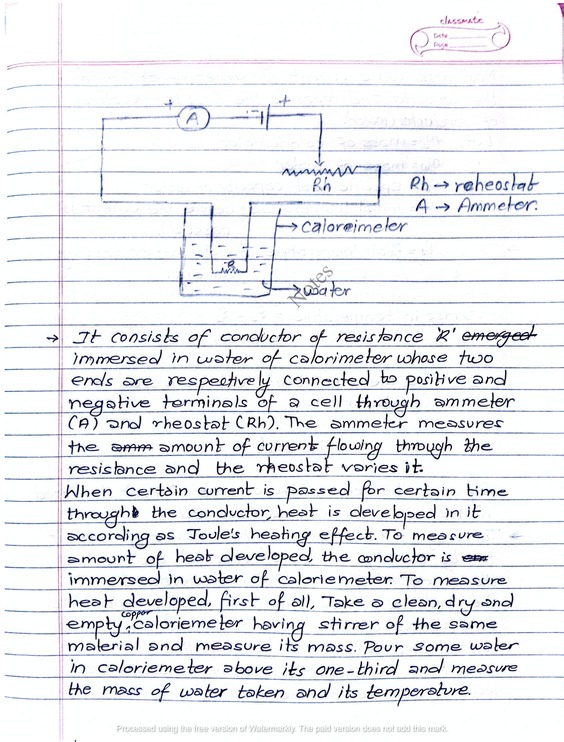 classmate
Date
Page
+
A
+
Rh
Rh → reheostat
A → Ammeter.
→ Caloreimeter
R
→ water
Notes
→ It consists of conductor of resistance 'R' emerged
immersed in water of calorimeter whose two
ends are respectively connected to positive and
negative terminals of a cell through ammeter
(A) and rheostat (Rh). The ammeter measures
the amm amount of current flowing through the
resistance and the rheostat varies it.
When certain current is passed for certain time
through the conductor, heat is developed in it
according as Joule's heating effect. To measure
amount of heat developed, the conductor is
immersed in water of caloriemeter. To measure
heat developed, first of all, Take a clean, dry and
empty copper caloriemeter having stirrer of the same
material and measure its mass. Pour some water
in caloriemeter above its one-third and measure
the mass of water taken and its temperature.
Processed using the free version of Watermarkly. The paid version does not add this mark.